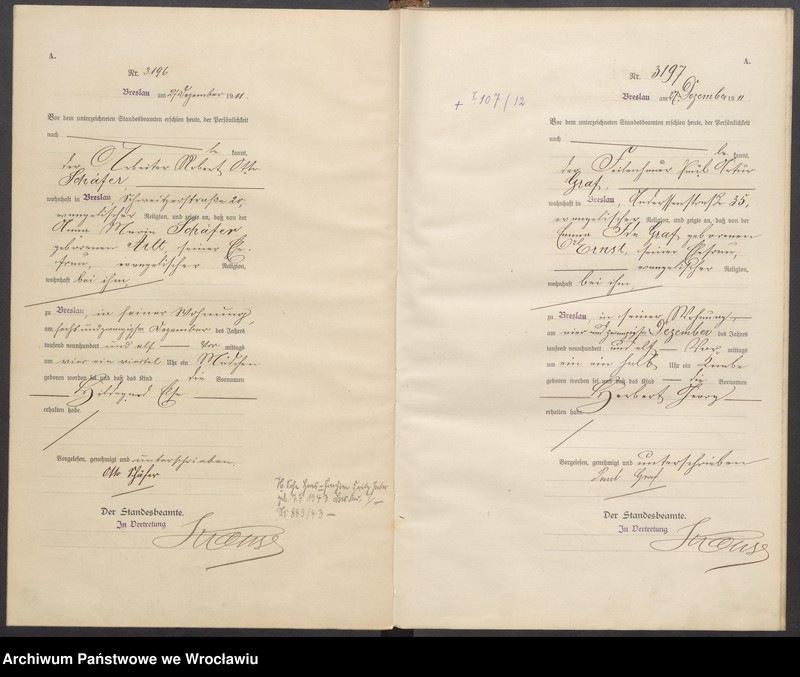 A.
Nr. 3196
Breslau am 27 Dezember 1911.
Vor dem unterzeichneten Standesbeamten erschien heute, der Persönlichkeit
nach
be kannt,
der Arbeiter Robert Otto
Schäfer,
wohnhaft in Breslau, Schweitzerstraße 20,
evangelischer Religion, und zeigte an, daß von der
Anna Maria Schäfer
geborenen Arlt, seiner Ehe-
frau, evangelischer Religion,
wohnhaft bei ihm,
zu Breslau, in seiner Wohnung,
am sechsundzwanzigsten Dezember des Jahres
tausend neunhundert und elf Vor mittags
um vier ein viertel Uhr ein Mädchen
geboren worden sei und daß das Kind die Vornamen
Hildegard Else
erhalten habe.
Vorgelesen, genehmigt und unterschrieben.
Otto Schäfer
geb. 7.7. 1943
Nr. 883/43
Der Standesbeamte.
In Vertretung
Krause
A.
Nr. 3197
+ I 107/12
Breslau am 27. Dezember 1911.
Vor dem unterzeichneten Standesbeamten erschien heute, der Persönlichkeit
nach
be kannt,
der Feilenhauer Paul Artur
Graf,
wohnhaft in Breslau, Anderssenstraße 35,
evangelischer Religion, und zeigte an, daß von der
Emma Ida Graf geborenen
Ernst, seiner Ehefrau,
evangelischer Religion,
wohnhaft bei ihm,
zu Breslau, in seiner Wohnung,
am vierundzwanzigsten Dezember des Jahres
tausend neunhundert und elf Vor mittags
um ein ein halb Uhr ein Knabe
geboren worden sei und daß das Kind die Vornamen
Herbert Georg
erhalten habe.
Vorgelesen, genehmigt und unterschrieben
Paul Graf
Der Standesbeamte.
In Vertretung
Krause
Archiwum Państwowe we Wrocławiu